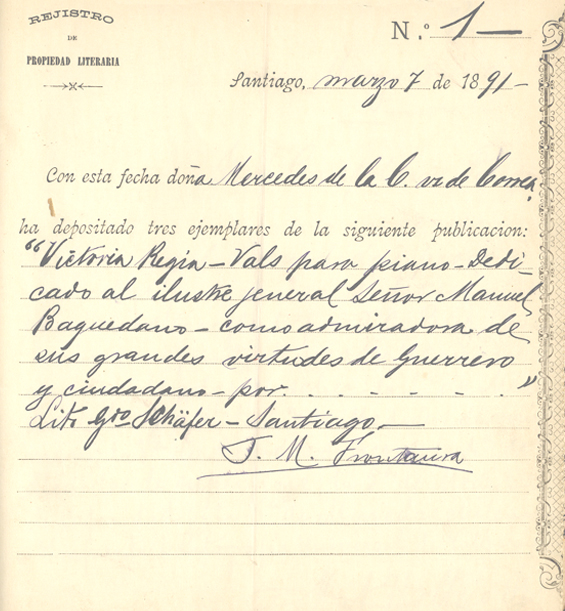 REJISTRO
DE
PROPIEDAD LITERARIA
N.º 1—
Santiago, marzo 7 de 1891—
Con esta fecha doña Mercedes de la C. v. de Correa
ha depositado tres ejemplares de la siguiente publicacion:
"Victoria Regia — Vals para piano — Dedi-
cado al ilustre jeneral Señor Manuel
Baquedano — como admiradora de
sus grandes virtudes de Guerrero
y ciudadano — por. . . . . . . ."
Lito Schäfer — Santiago —
M. Frontaura